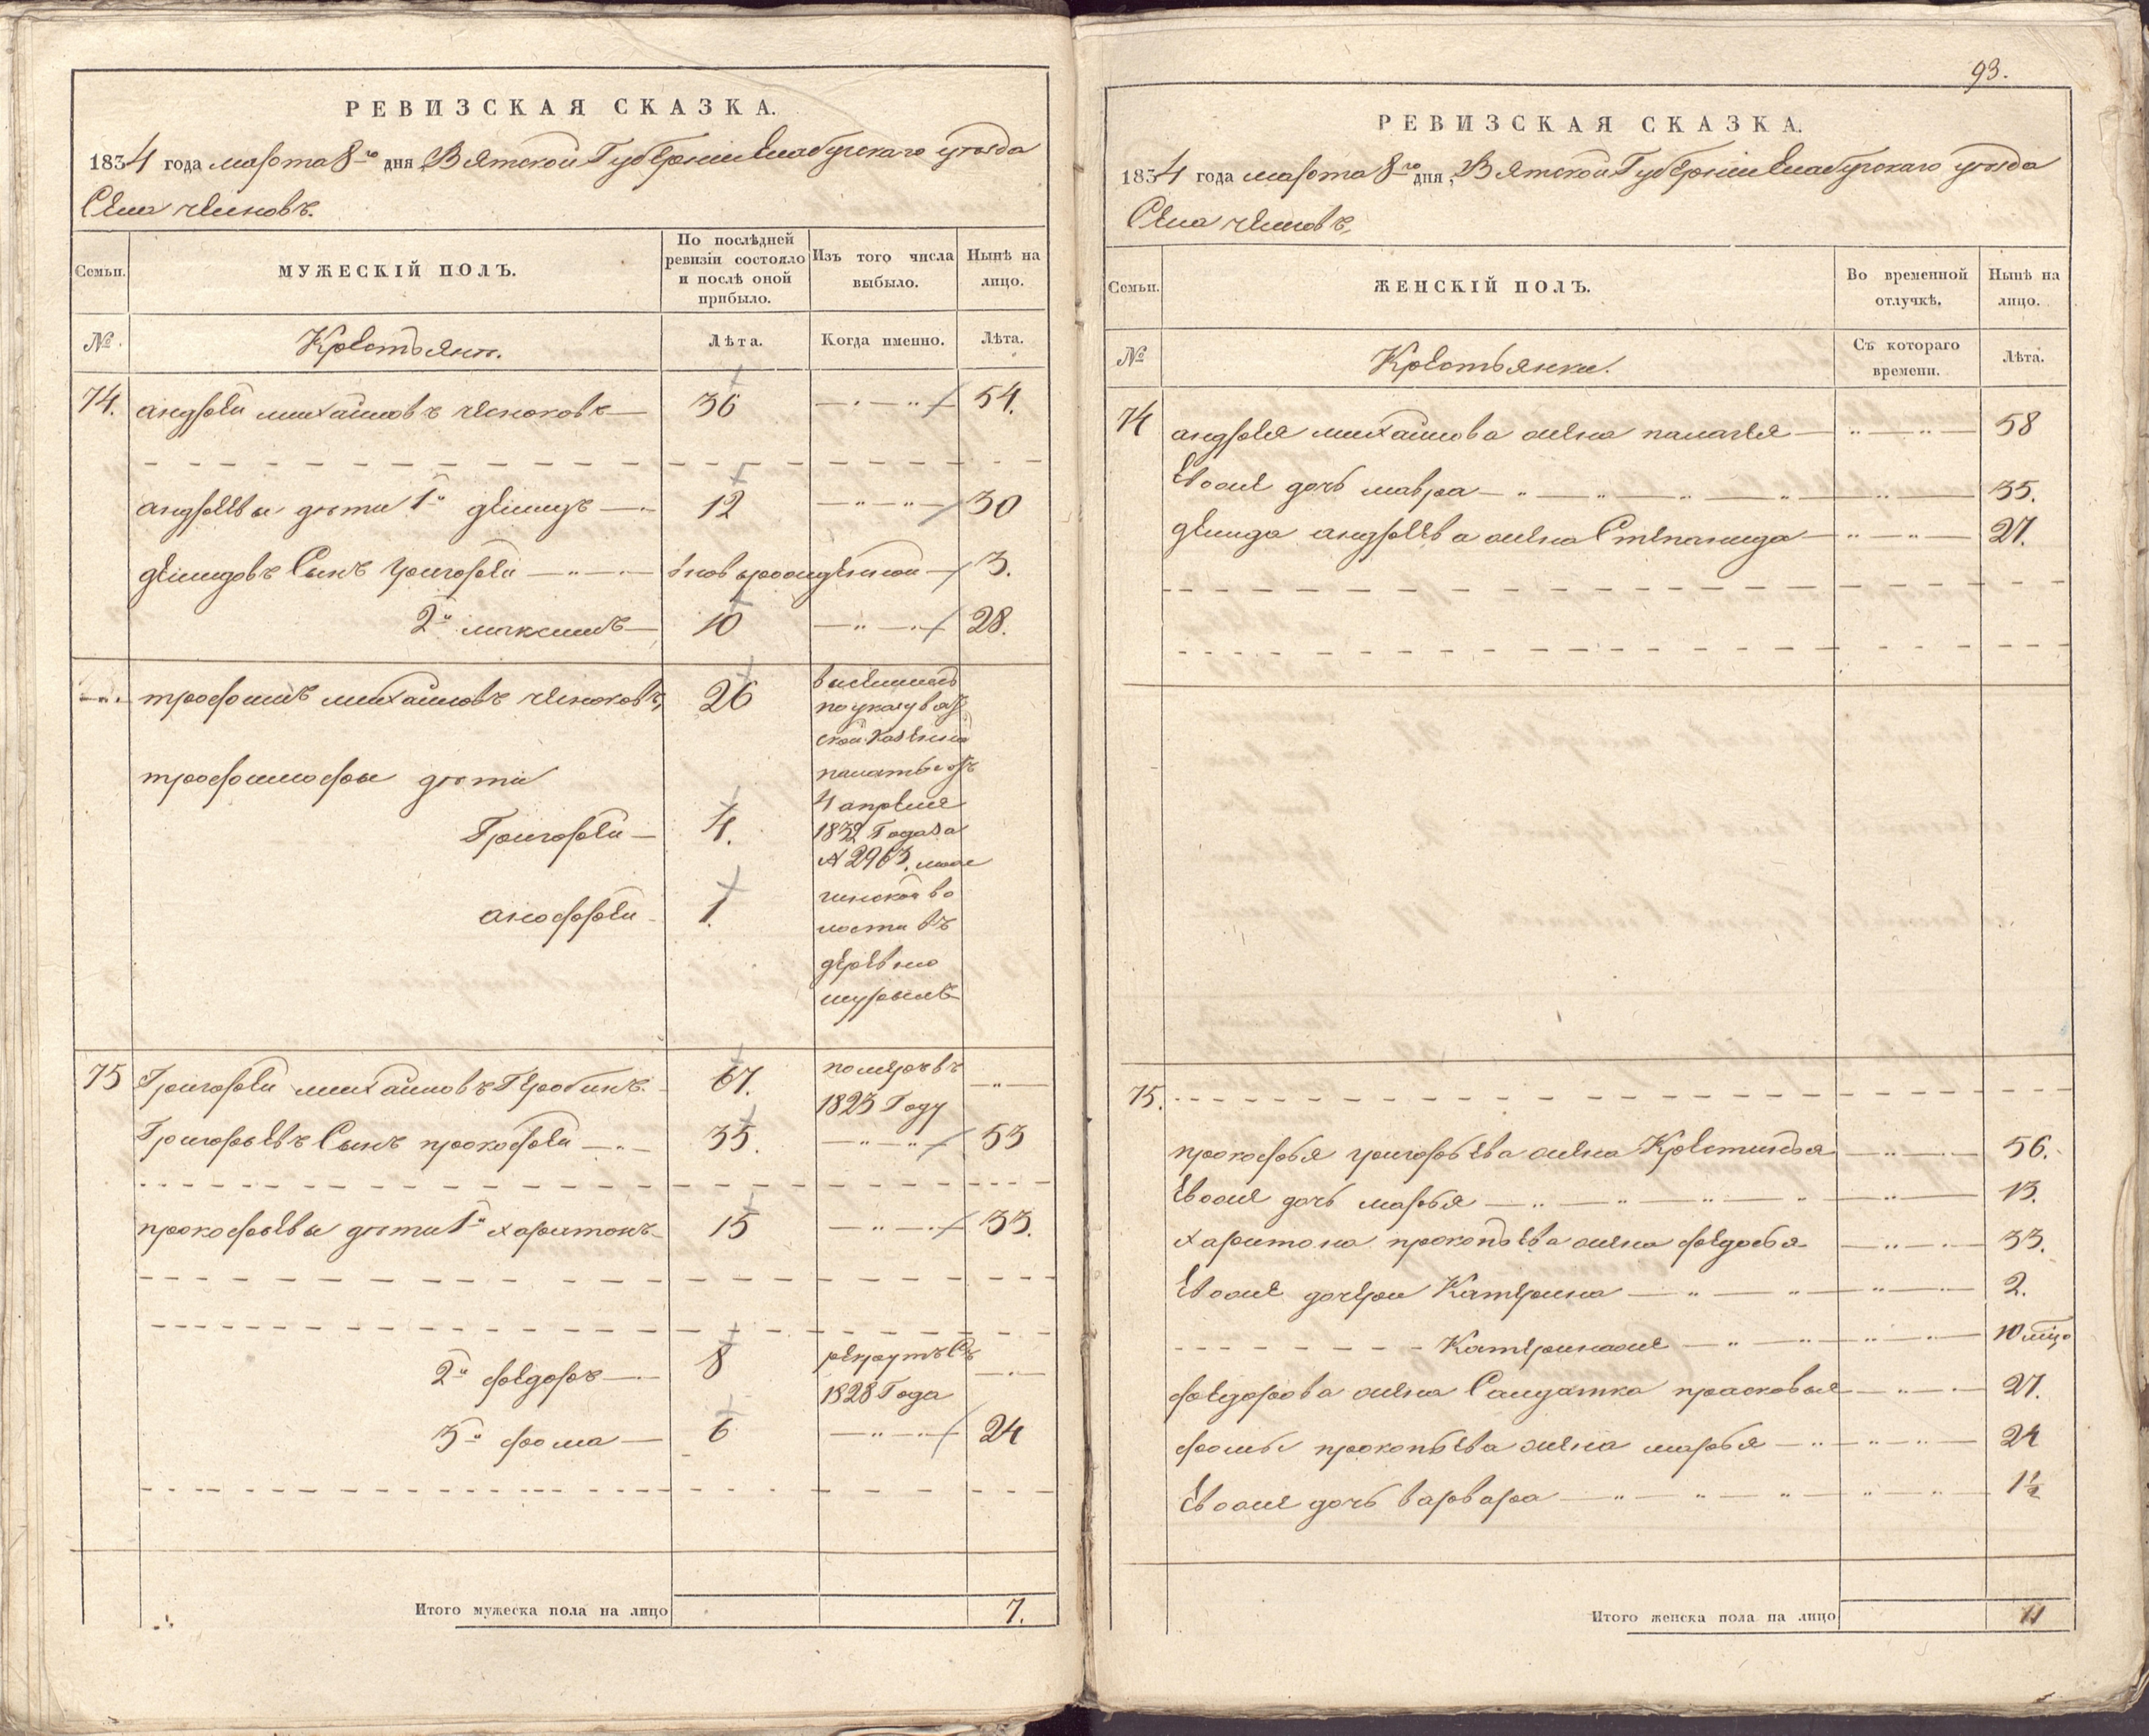 РЕВИЗСКАЯ СКАЗКА.
1834 года марта 8го дня, Вятской Губернии Елабужскаго уезда
Села челновъ.
Семьи.
МУЖЕСКІЙ ПОЛЪ.
По послѣдней ревизіи состояло и послѣ оной прибыло.
Изъ того числа выбыло.
Нынѣ на лицо.
№.
Крестьяни.
Лѣта.
Когда именно.
Лѣта.
74. андрей михайловъ 36 54.
андреевы дѣти 1й демидъ 12 30
демидовъ Сынъ григорей вновьрожденной 3.
2й максимъ 10 28.
трофимъ михайловъ 26
трофимофы дѣти
Григорей 4.
анофрей 1.
выселились
по указу вят
ской казенной
палаты отъ
4 апреля
1832 Года за
№ 2963.
волости въ
деревню
75 Григорей михайловъ 67. померъ въ
1825 Году
Григорьевъ Сынъ прокофей 35. 53
прокофьевы дѣти 1й харитонъ 15 33.
2й федоръ 8 рекрутъ Съ
1828 Года
3й фома 6 24
Итого мужеска пола на лицо 7.
93.
РЕВИЗСКАЯ СКАЗКА.
1834 года марта 8го дня, Вятской Губернии Елабужскаго уезда
Села челновъ,
Семьи.
ЖЕНСКІЙ ПОЛЪ.
Во временной отлучкѣ.
Нынѣ на лицо.
№
Крестьянки.
Съ котораго времени.
Лѣта.
74 андрея михайлова жена палагея 58
Евоже дочь мавра 35.
демида андреева жена Степанида 27.
75.
прокофья григорьева жена Крестинья 56.
Евоже дочь марья 13.
харитона прокопьева жена федосья 33.
Евоже дочери Катерина 2.
Катеринаже
федорова жена Салдатка прасковья 27.
фомы прокопьева жена марья 24
Евоже дочь варвара 1½
Итого женска пола на лицо 11